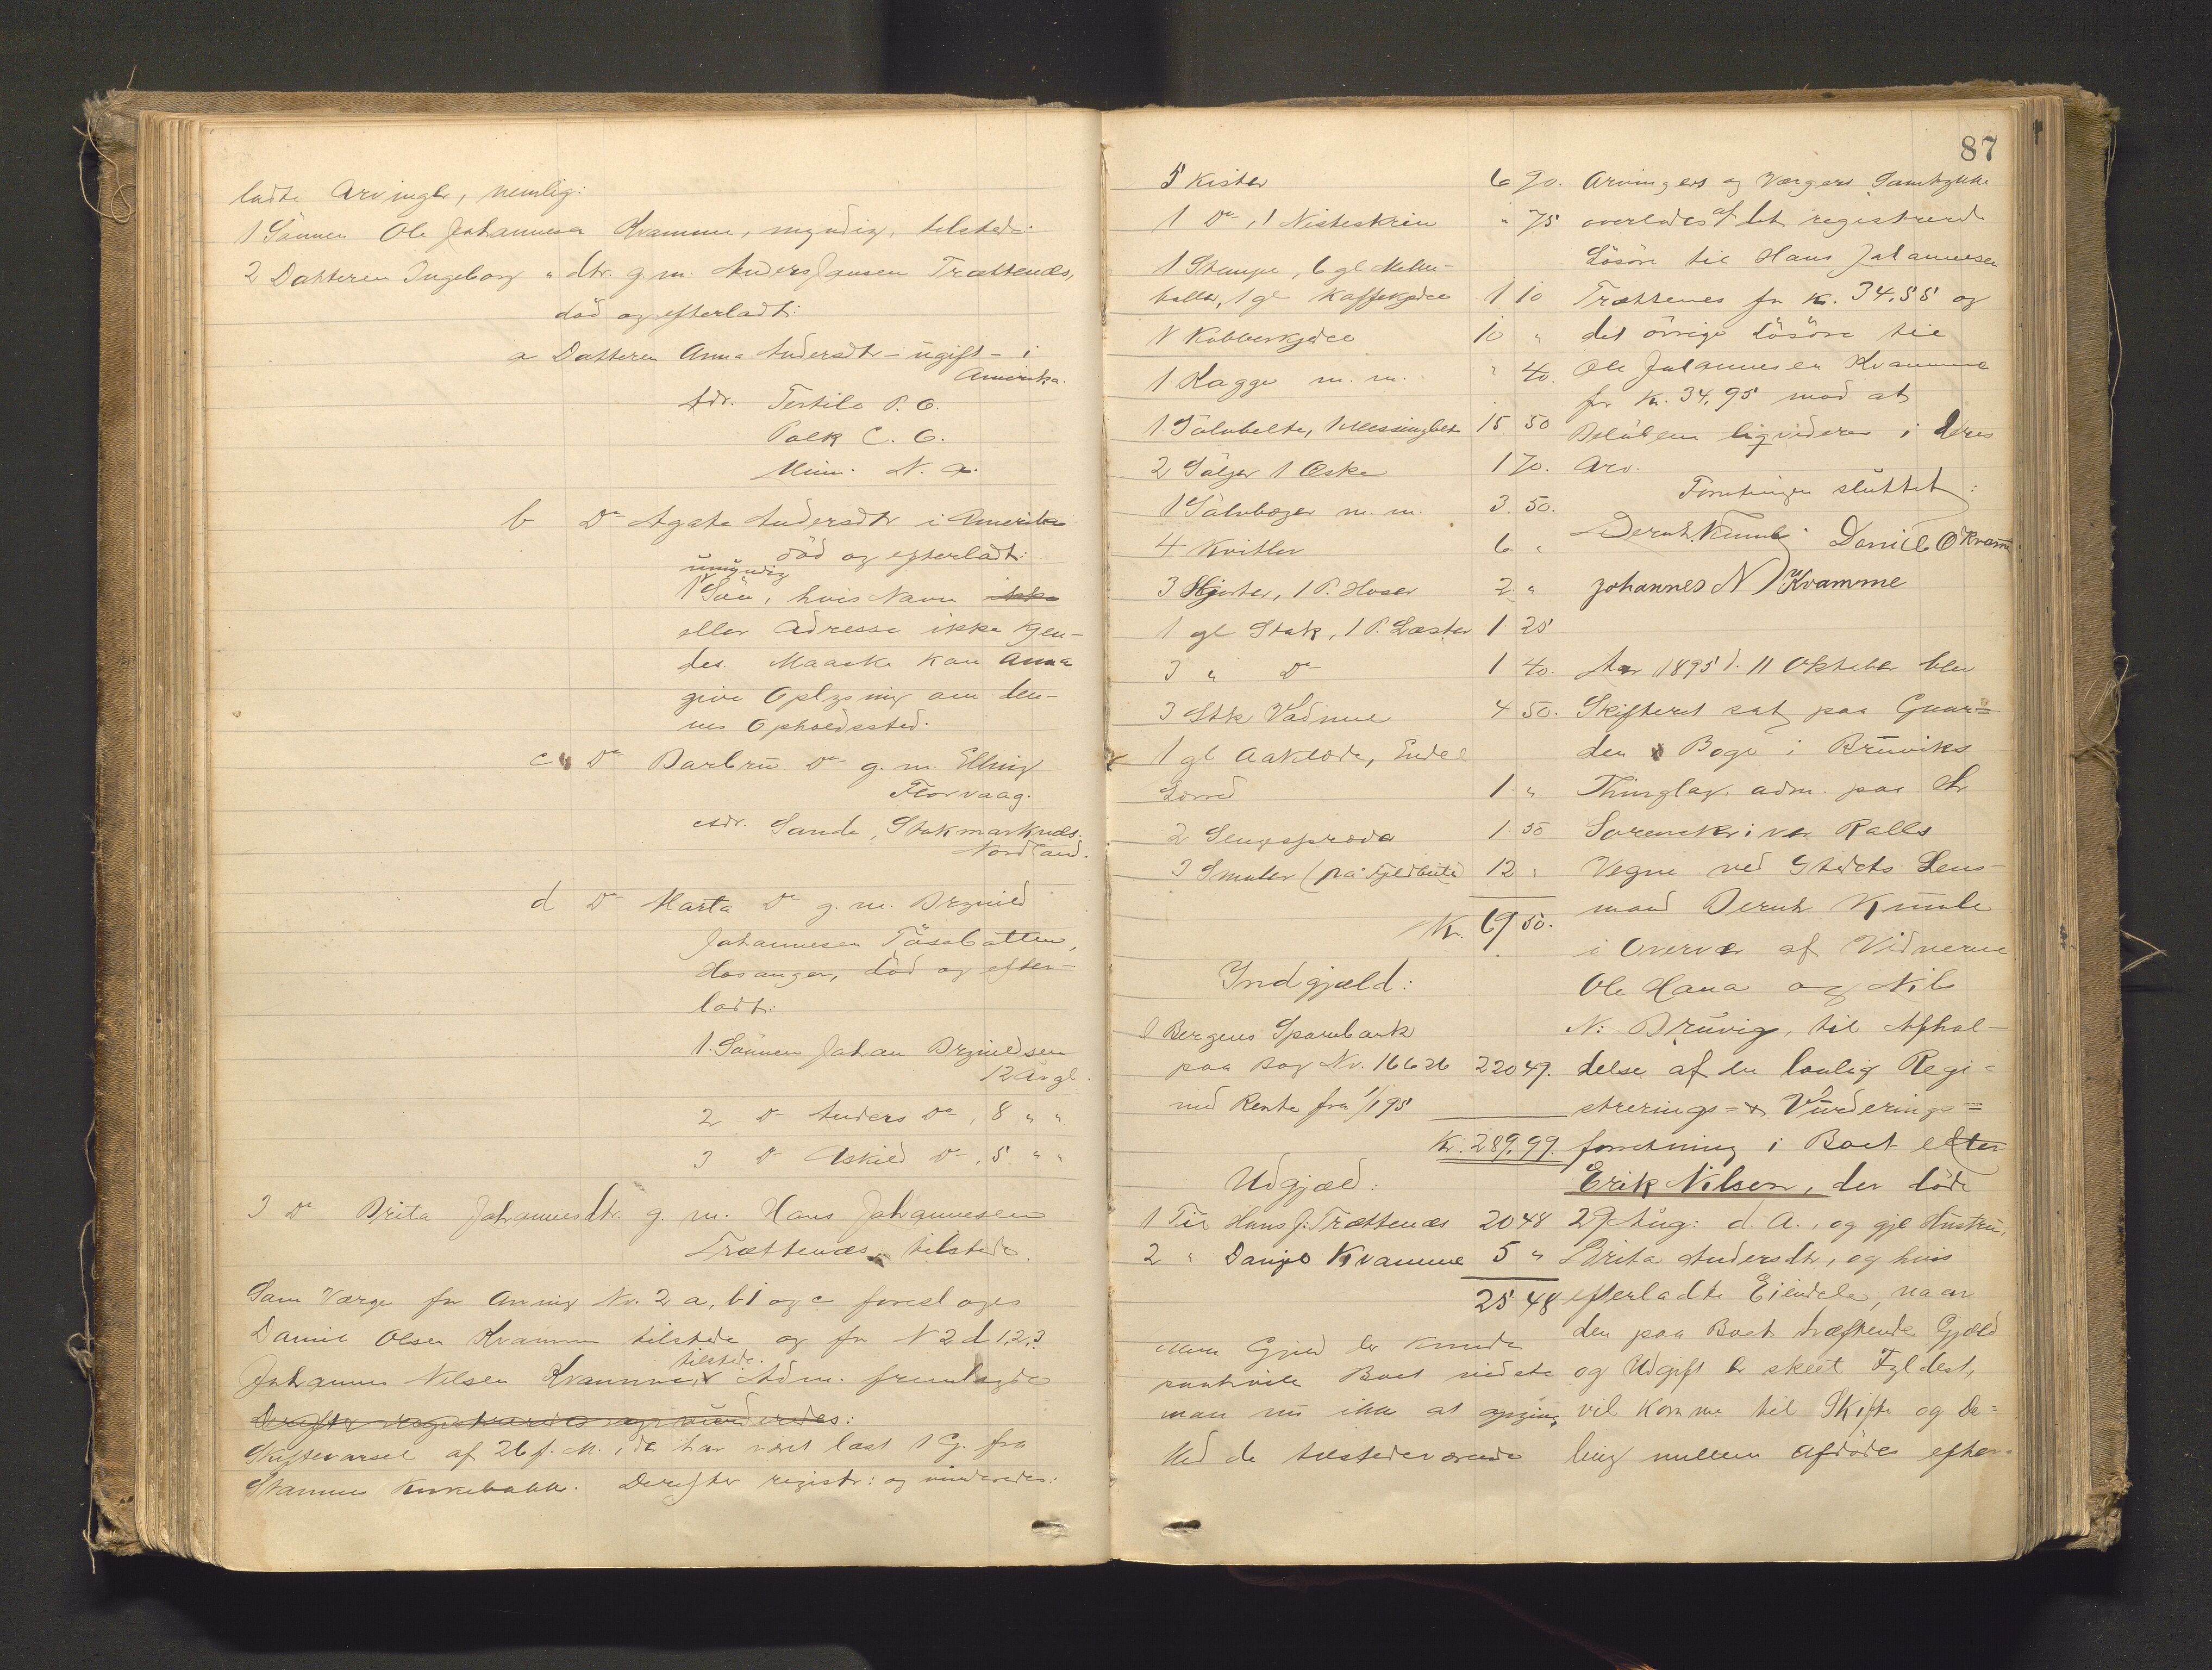 ladte Arvinger, nemlig:
1 Sønnen Ole Johannesen Kvamme, myndig, tilstede
2 Datteren Ingeborg " dtr. g. m. Anders Jansen Trættenæs,
död og efterladt:
a Datteren Anna Andersdtr - ugift - i
Amerika.
Adr. Fertile P. O.
Polk C. O.
Minn. N. A.
b Do Agate Andersdtr i Amerika
död og efterladt:
umyndig
1 Søn, hvis Navn ikke
eller Adresse ikke kjen-
des. Maaske kan Anna
give Oplysning om den-
nes Opholdssted.
c Do Barbru Do g. m. Elling
Florvaag.
Adr. Sande, Stokmarknæs.
Nordland.
d Do Marta Do g. m. Brynild
Johannesen Tössebotten,
Hosanger, död og efter-
ladt:
1. Sønnen Johan Brynildsen
12 Aar gl.
2 Do Anders Do, 8 " "
3 Do Askild Do, 5 " "
3 Do Brita Johannesdtr. g. m. Hans Johannesen
Trættenæs, tilstede.
Som Værge for Arving Nr. 2 a, b 1 og c foresloges
Daniel Olsen Kvamme tilstede og for N 2 d 1, 2, 3
tilstede.
Johannes Nilsen Kvamme. Adm. fremlagde
Derefter registreredes og vurderedes:
Skiftevarsel af 26 f. M., der har været læst 1 G. fra
Stamnes Kirkebakke. Derefter registr: og vurderedes:
87
5 Kister 6 70.
1 Do, 1 Nisteskrin " 75
1 Stampe, 6 gl Melke-
boller, 1 gl Kaffekjedel 1 10
1 Kobberkjedel 10 "
1 Kagge m. m. " 40.
1 Sölvbelte, 1 Messingbelte 15 50
2 Söljer 1 Æske 1 70.
1 Sölvbæger m. m. 3. 50.
4 Kvitler 6 "
3 Skjorter, 1 P. Hoser 2 "
1 gl Stak, 1 P. Læster 1 25
3 " Do 1 40.
3 Stk Vadmel 4 50.
1 gl Aaklæde, Endel
Lærred 1 "
2 Sengspræder 1 50
3 Smaler (på Fjeldbeite) 12 "
Kr. 69 50.
Indgjæld:
I Bergens Sparebank
paa Bog Nr. 16626 220 49.
med Rente fra 1/1 95
Kr. 289,99.
Udgjæld:
1 Til Hans J. Trættenæs 20 48
2 " Daniel Kvamme 5 "
25 48
Mere Gjeld der kunde
paahvile Boet vidste
man nu ikke at opgive.
Med de tilstedeværende
Arvingers og Værgers Samtykke
overlodes af det registrerede
Lösöre til Hans Johannesen
Trættenes for Kr. 34,55 og
det övrige Lösöre til
Ole Johannesen Kvamme
for Kr. 34,95 mod at
Belöbene ligvideres i deres
Arv.
Forretningen sluttet:
Bernh. Kumle Daniel O Kvamme
Johannes N Kvamme
Aar 1895 d. 11 Oktober blev
Skifteret sat paa Gaar=
den Boge i Bruviks
Thinglag. adm. paa Hr
Sorenskriver Ralls
Vegne ved Stedets Lens-
mand Bernh Kumle
i Overvær af Vidnerne
Ole Hana og Nils
N. Bruvig, til Afhol-
delse af en lovlig Regi-
strerings- & Vurderings=
forretning i Boet efter
Erik Nilsen, der döde
29 Aug: d. A., og gjl Hustru,
Brita Andersdtr, og hvis
efterladte Eiendele, naar
den paa Boet hæftende Gjæld
og Udgift er skeet Fyldest,
vil komme til Skifte og De=
ling mellem Afdödes efter-